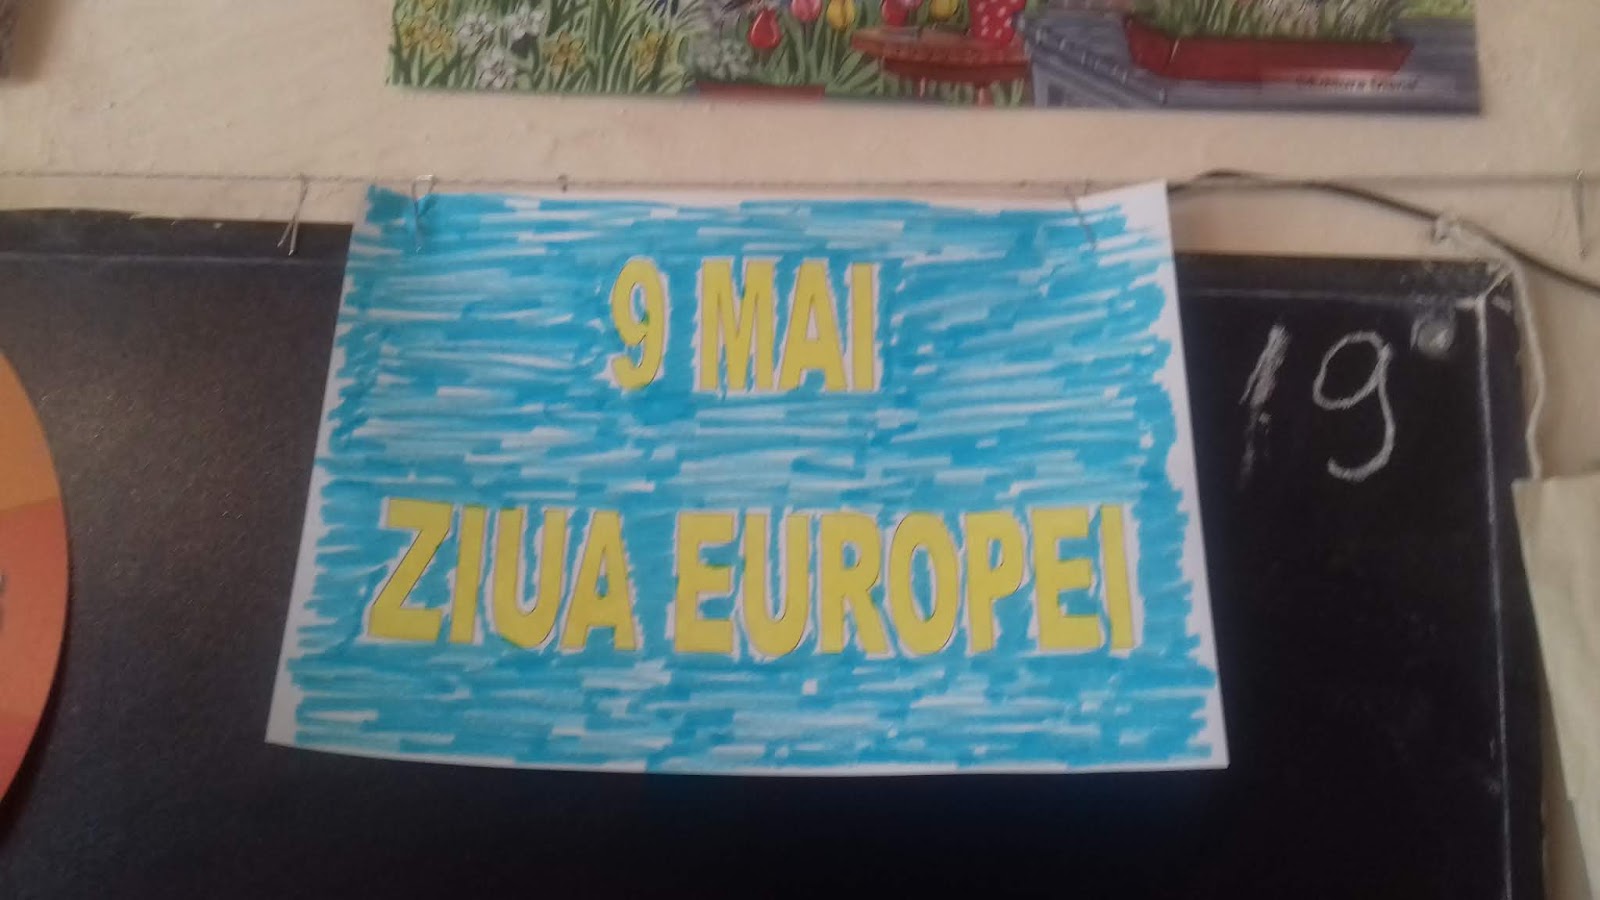 9 MAI
ZIUA EUROPEI
19